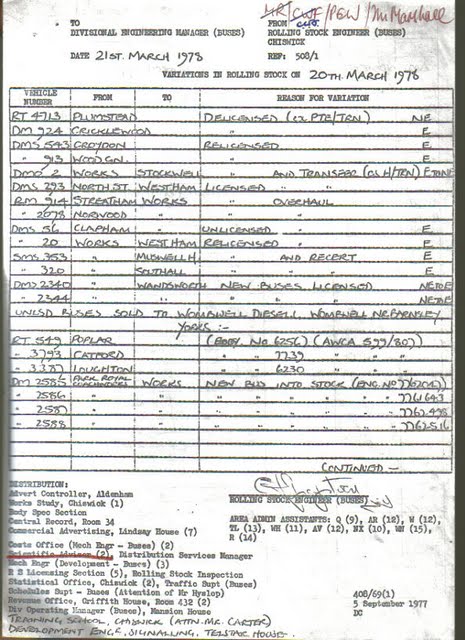 HR/CWF/PGW/Mr Marshall
TO FROM
DIVISIONAL ENGINEERING MANAGER (BUSES) ROLLING STOCK ENGINEER (BUSES)
CHISWICK
DATE 21ST. MARCH 1978 REF: 508/1
VARIATIONS IN ROLLING STOCK ON 20TH. MARCH 1978
VEHICLE NUMBER FROM TO REASON FOR VARIATION
RT 4713 PLUMSTEAD DELICENSED (EX PTE/TRN) NE
DM 924 CRICKLEWOOD " E
DMS 543 CROYDON RELICENSED E
" 913 WOOD GN. " E
DMO 2 WORKS STOCKWELL " AND TRANSFER (OS H/TRN)
DMS 293 NORTH ST. WESTHAM LICENSED "
RM 914 STREATHAM WORKS " OVERHAUL
" 2078 NORWOOD " "
DMS 56 CLAPHAM UNLICENSED " E
" 20 WORKS WEST HAM RELICENSED " E
SMS 353 " MUSWELL H " AND RECERT E
" 320 " SOUTHALL " " E
DMS 2340 " WANDSWORTH NEW BUSES LICENSED NETOE
" 2344 " " " " " NETOE
UNLSD BUSES SOLD TO WOMBWELL DIESELL, WOMBWELL NR BARNSLEY
YORKS :-
RT 549 POPLAR (BODY NO 6256) (AWCA 599/80)
" 3793 CATFORD " " 7739 "
" 3287 LOUGHTON " " 6230 "
DM 2585 PARK ROYAL COACHWORKS WORKS NEW BUS INTO STOCK (ENG. NO
" 2586 " " " " " " " " 7761643
" 2587 " " " " " " " " 7762498
" 2588 " " " " " " " " 7762516
CONTINUED —
DISTRIBUTION:
Advert Controller, Aldenham ROLLING STOCK ENGINEER (BUSES)
Works Study, Chiswick (1)
Body Spec Section
Central Record, Room 34 AREA ADMIN ASSISTANTS: Q (9), AR (12), W (12),
Commercial Advertising, Lindsay House (7) TL (13), WH (11), AV (12), NX (10), WN (15),
R (14)
Costs Office (Mech Engr - Buses) (2)
Scientific Adviser (2), Distribution Services Manager
Mech Engr (Development - Buses) (3)
R S Licensing Section (5), Rolling Stock Inspection
Statistical Office, Chiswick (2), Traffic Supt (Buses)
Schedules Supt - Buses (Attention of Mr Hyslop) 408/69(1)
Revenue Office, Griffith House, Room 432 (2) 5 September 1977
Div Operating Manager (Buses), Mansion House DC
TRAINING SCHOOL, CHISWICK (ATTN. MR. CARTER)
DEVELOPMENT ENGR. SIGNALLING, TELSTAR HOUSE.